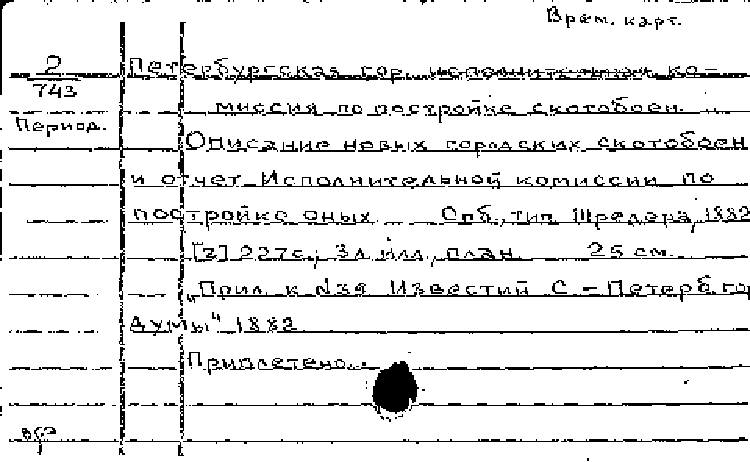 Врем. карт.
2
743
Период.
Петербургская гор. исполнительная ко-
миссия по постройке скотобоен.
Описание новых городских скотобоен
и отчет Исполнительной комиссии по
постройке оных. Спб., тип. Шредера, 1882
[2] 227с., 3л. илл., план. 25 см.
„Прил. к №39 Известий С-Петерб. гор
думы“ 1882
Приплетено.